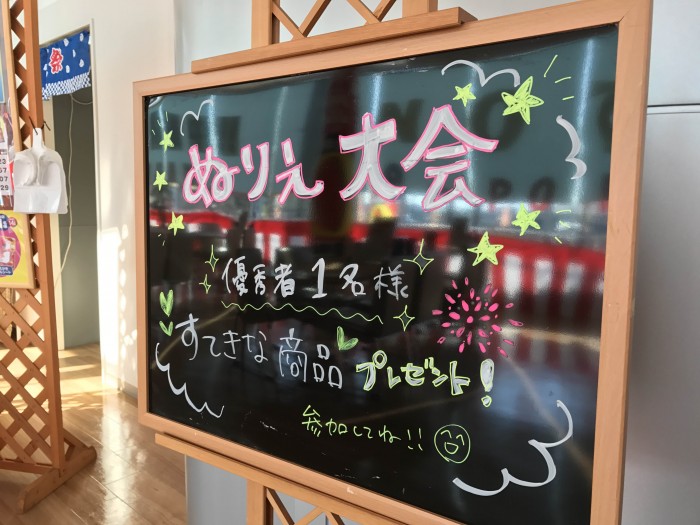 祭
23
07
07
29
ぬりえ大会
優秀者1名様
すてきな商品プレゼント!
参加してね!!